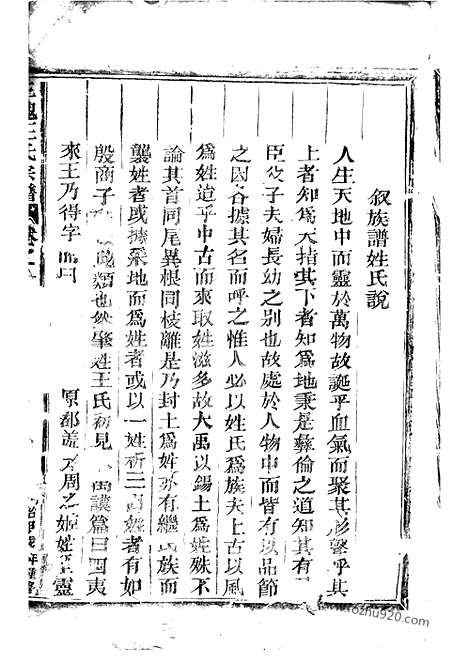 敘族譜姓氏說
人生天地中而靈於萬物故誕乎血氣而聚其形聲乎其
上者知為天拮其下者知為地秉是彝倫之道知其有
臣父子夫婦長幼之別也故處於人物中而皆有以品節
之因各據其名而呼之惟人必以姓氏為族夫上古以風
為姓道乎中古而來取姓滋多故大禹以錫土為姓殊不
論其首同尾異根同枝離是乃封土為姓亦有繼氏族而
襲姓者或據張地而為姓者或以一姓析三姓者有如
殷商子 類也然肇姓王氏初見 謨篇曰四夷
來王乃得字 原郡 周之姬姓 靈
王氏宗譜 卷之一
甲戌年
zohzu920.com